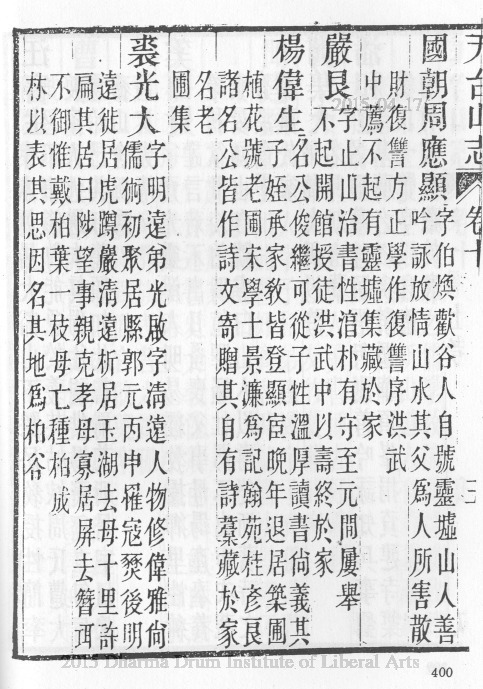 天台山志 卷十
國朝周應顯字伯煥歡谷人自號靈墟山人善
吟詠放情山水其父爲人所害散
財復讐方正學作復讐序洪武
中薦不起有靈墟集藏於家
嚴艮字止山治書性涫朴有守至元間屢舉
不起開館授徒洪武中以壽終於家
楊偉生名公俊繼可從子性溫厚讀書尙義其
子姪承家敎皆登顯宦晩年退居築圃
植花號老圃宋學士景濂爲記翰苑桂彥艮
諸名公皆作詩文寄贈其自有詩藳藏於家
名老
圃集
裘光大字明遠弟光啟字淸遠人物修偉雅尙
儒術初聚居縣郭元丙申罹寇燹後明
遠徙居虎蹲嚴淸遠析居玉湖去母十里許
扁其居曰陟望事親克孝母寡居屏去簪珥
不御惟戴柏葉一枝母亡種柏成
林以表其思因名其地爲柏谷
2015.04.17
2013 Dharma Drum Institute of Liberal Arts
400